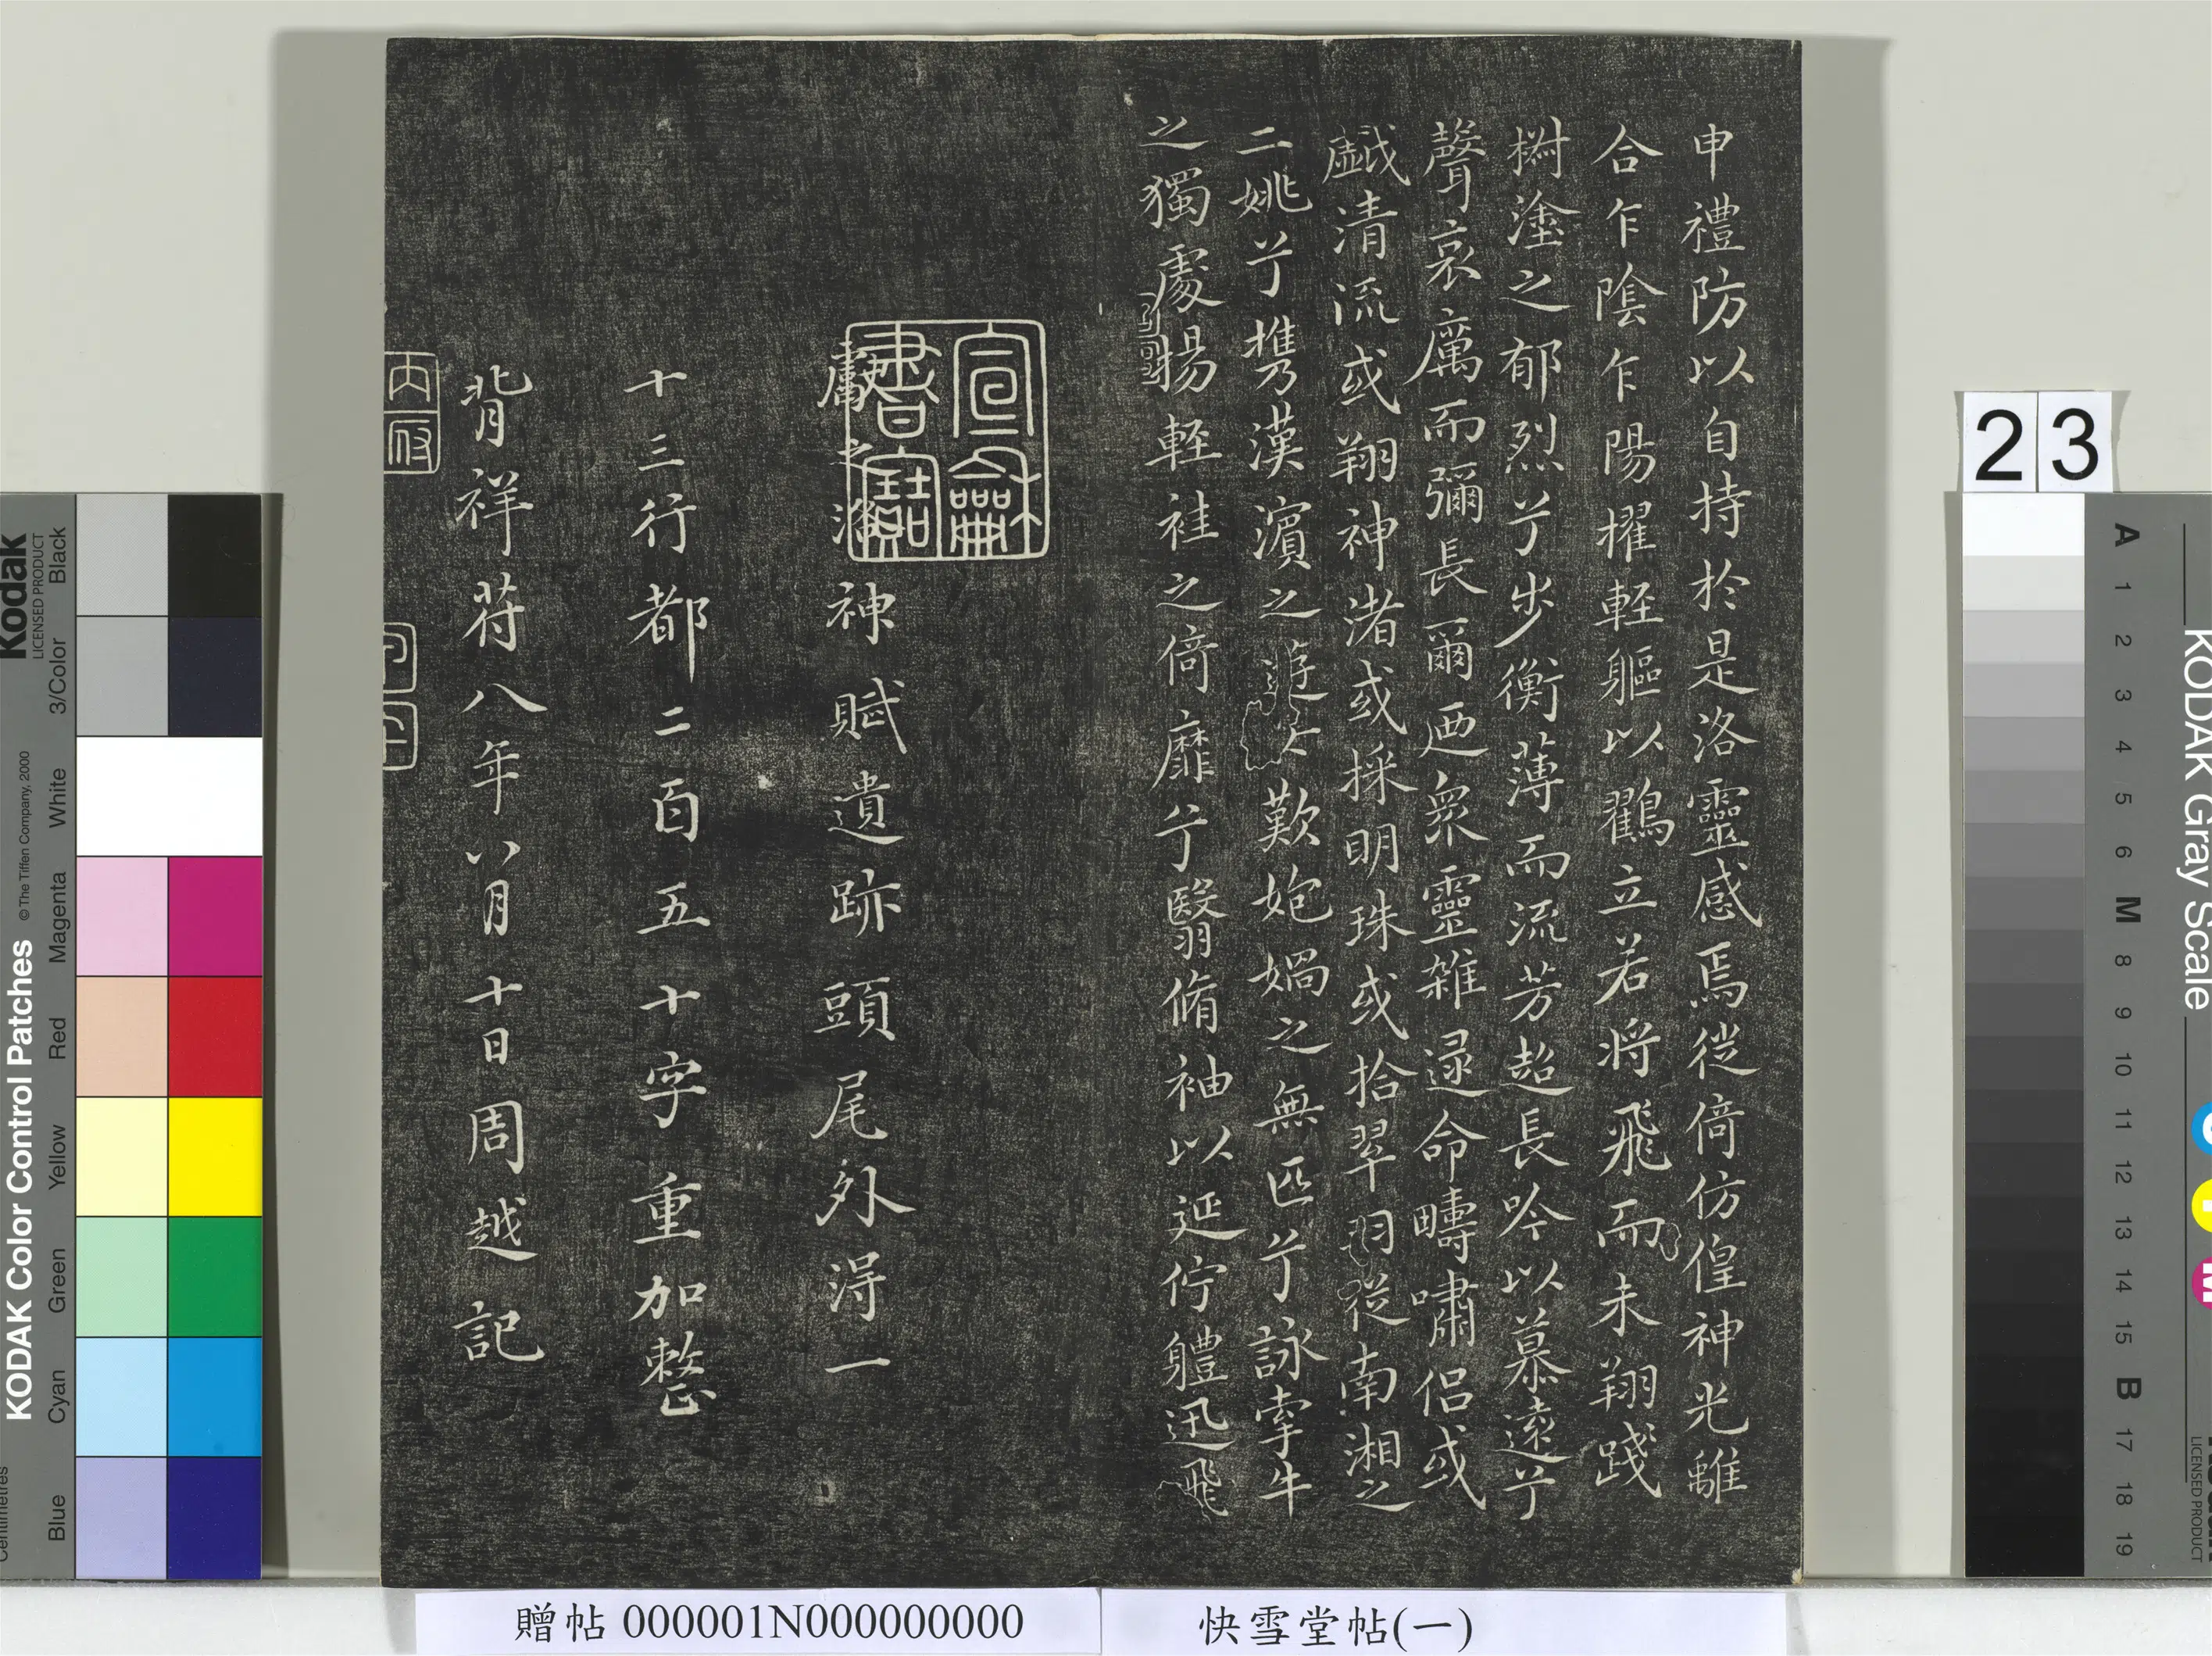 申禮防以自持於是洛靈感焉從倚仿偟神光離
合乍陰乍陽擢輕軀以鸖立若將飛而未翔踐
椒塗之郁烈兮步衡薄而流芳超長吟以慕遠兮
聲哀厲而彌長爾迺衆靈雜遝命疇嘯侶或
戲清流或翔神渚或採明珠或拾翠羽從南湘之
二姚兮攜漢濱之遊女歎妑媧之無匹兮詠牽牛
之獨處揚輕袿之倚靡兮翳脩袖以延佇體迅飛
宣和書寶
獻之洛神賦遺跡頭尾外得一
十三行都二百五十字重加整
背祥符八年八月十日周越記
內府
23
快雪堂帖(一)
贈帖 000001N000000000
KODAK Color Control Patches
Kodak
LICENSED PRODUCT
© The Tiffen Company, 2000
Centimetres
Blue
Cyan
Green
Yellow
Red
Magenta
White
3/Color
Black
KODAK Gray Scale
LICENSED PRODUCT
A 1 2 3 4 5 6 M 8 9 10 11 12 13 14 15 B 17 18 19
C
Y
M